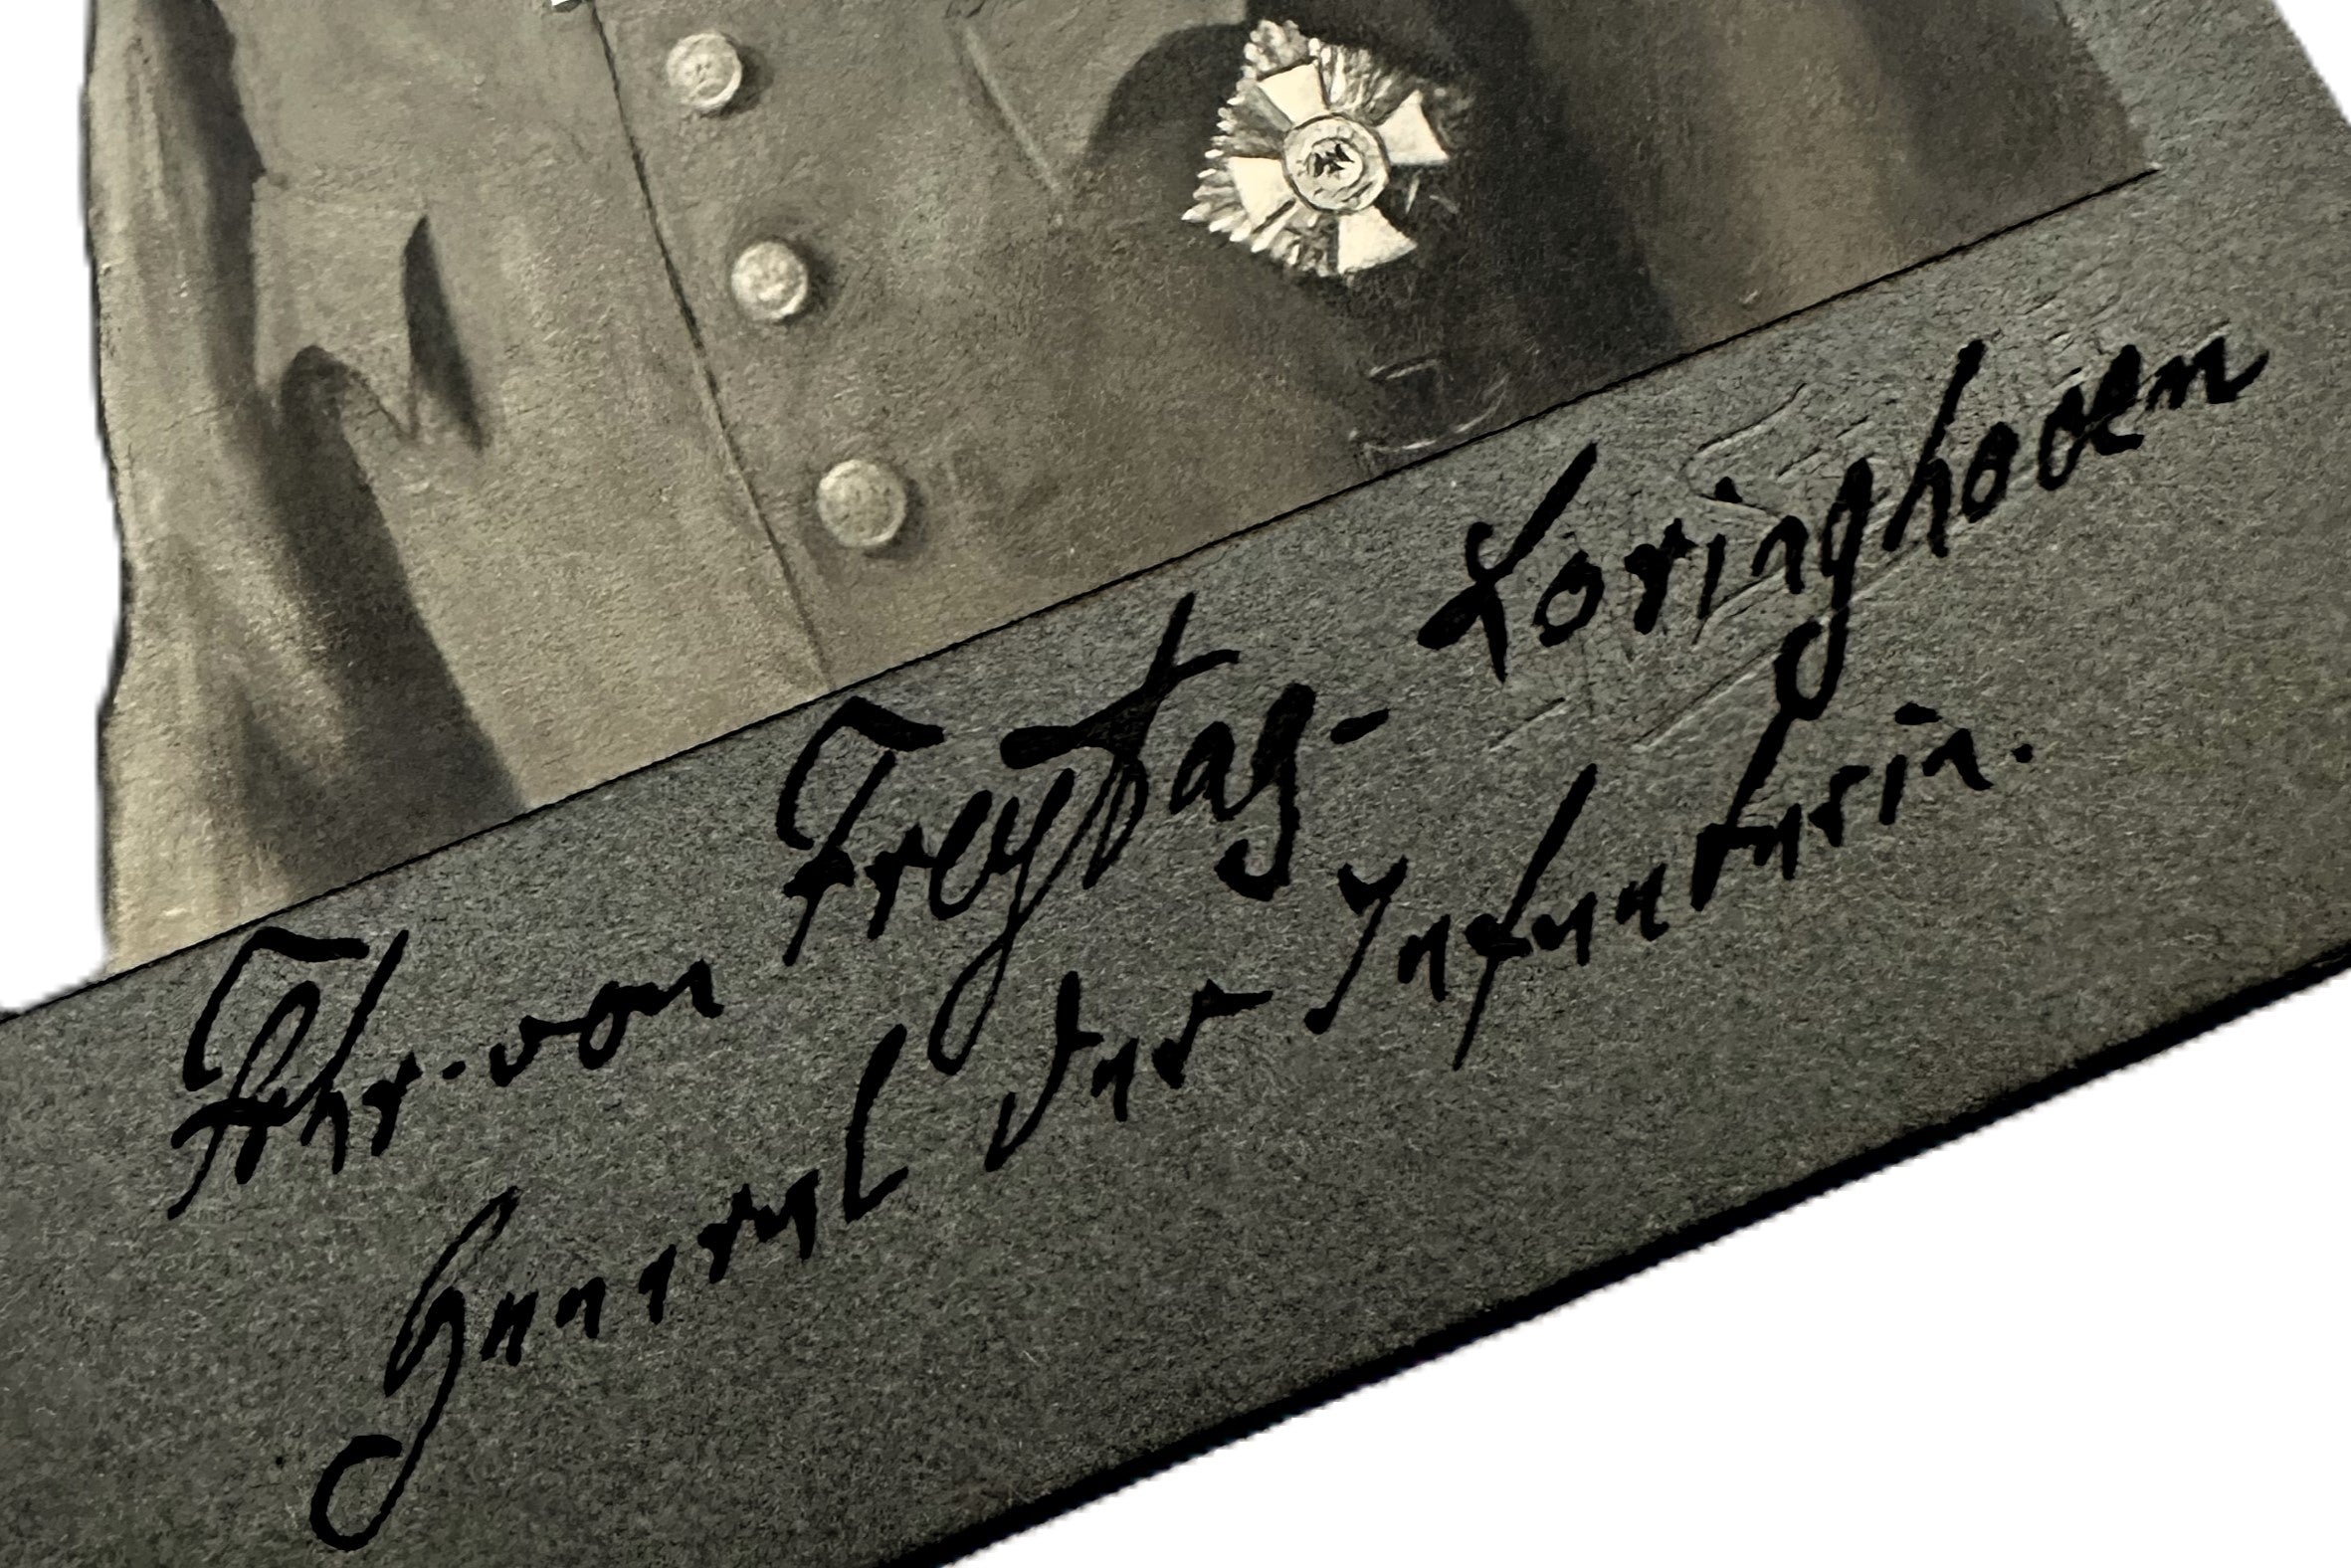 Frhr. von Freytag-Loringhoven
General der Infanterie.